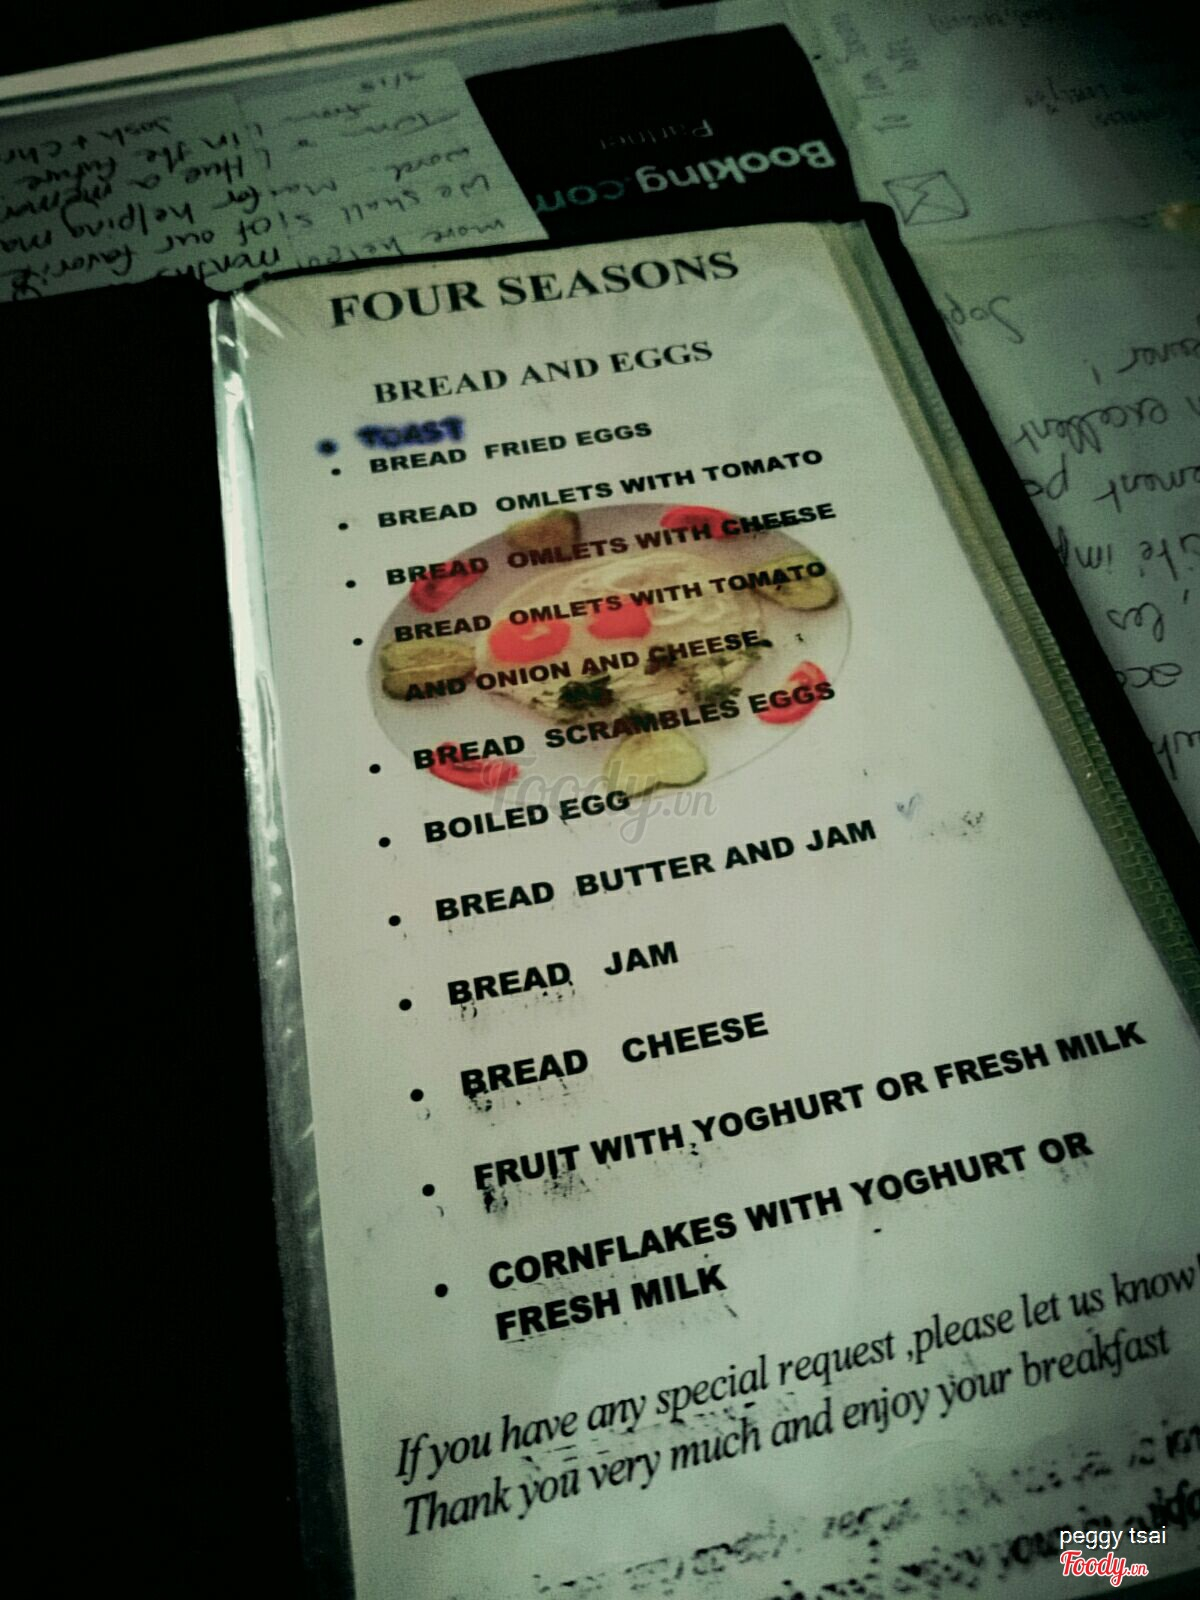 3/18
from
Josh + Chr
in the future
L Hue a memor
of our favorite
man for helping ma
We shall
months
more
Booking.com
Partner
FOUR SEASONS
BREAD AND EGGS
• TOAST
• BREAD FRIED EGGS
• BREAD OMLETS WITH TOMATO
• BREAD OMLETS WITH CHEESE
• BREAD OMLETS WITH TOMATO
AND ONION AND CHEESE
• BREAD SCRAMBLES EGGS
• BOILED EGG
• BREAD BUTTER AND JAM
• BREAD JAM
• BREAD CHEESE
• FRUIT WITH YOGHURT OR FRESH MILK
• CORNFLAKES WITH YOGHURT OR
FRESH MILK
If you have any special request ,please let us know!
Thank you very much and enjoy your breakfast
excellent
Foody.vn
peggy tsai
Foody.vn